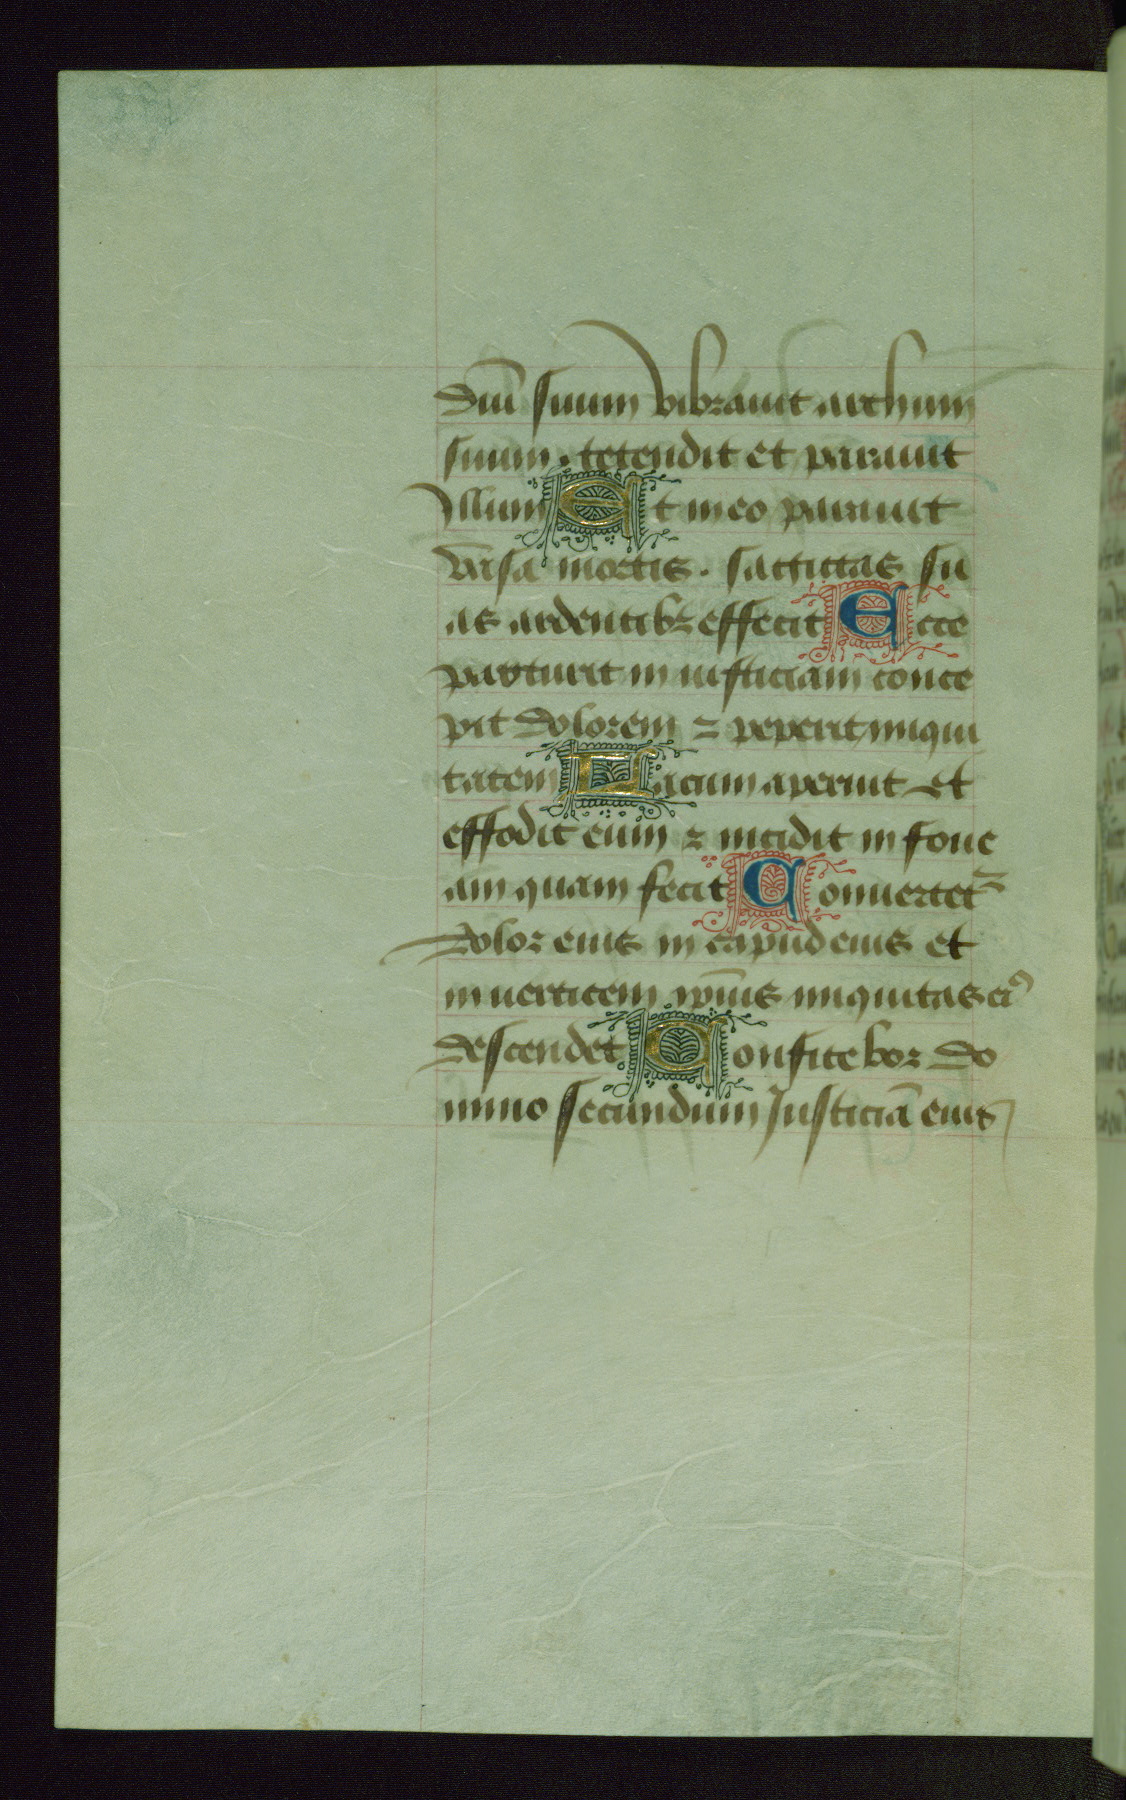 diū suum vibrauit archum
suum. tetendit et parauit
illum Et in eo parauit
vāsa mortis. sagittas su
as ardentibꝫ effecit Ecce
parturit in iusticiam conce
pit dolorem ⁊ peperit iniqui
tatem Lacum aperuit et
effodit eum ⁊ incidit in foue
am quam fecit Conuertetꝛ
dolor eius in capud eius et
in uerticem ip̄ius iniquitas eiꝰ
descendet Confitebor do
mino secundum Justiciā eius